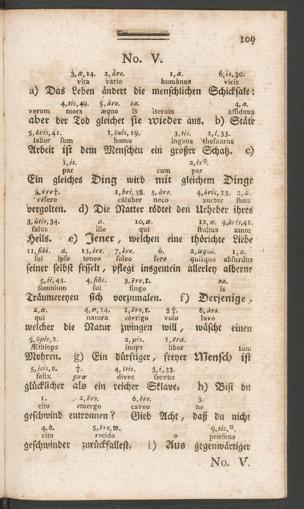 109
No. V.
3, æ, 14. 2, áre. 1, a. 6, is, 30.
vita vario humánus vicis
a) Das Leben ändert die menschlichen Schicksale:
4, tis, 49. 5, áre. 4, a.
verum mors æquo is iterum assiduus
aber der Tod gleichet sie wieder aus. b) Stäte
5, óris, 41. 1, ínis, 19. 3, tis. 2, i, 33.
labor sum homo ingens thesaurus
Arbeit ist dem Menschen ein großer Schatz. c)
1, is.
par cum par
Ein gleiches Ding wird mit gleichem Dinge
1, bri, 38. 5, áre. 4, óris, 13. 2, a.
refero cóluber neco auctor suus
vergolten. d) Die Natter tödtet den Urheber ihres
3, útis, 34. a. 10, æ. 12, æ. 9, bri, 41.
salus ille qui stultus amor
Heils. e) Jener, welchen eine thörichte Liebe
11, sibi. a. 13, ére. 7, ére. 6. 2, aque. 1, a.
sui ipse teneo soleo fero quisque absúrdus
seiner selbst fesselt, pflegt insgemein allerley alberne
5, ii, 43. 4, sibi. 3, ére, 1.
somnium sui fingo is
Träumereyen sich vorzumalen. f) Derjenige,
2, æ. 4, æ, 14. 1, ére, 1. 3 †. 6, áre.
qui natura córrigo volo lavo
welcher die Natur zwingen will, wäscht einen
5, ípis, 2. 2, pis. 1, éra.
Æthiops inops liber sum
Mohren. g) Ein dürftiger, freyer Mensch ist
5, icis, 0. †. 4, itis. 3, i, 33.
felix præ dives servus
glücklicher als ein reicher Sklave. h) Bist du
1. 2, ére. 6, ére. 3.
cito emergo caveo ne
geschwind entronnen? Gieb Acht, daß du nicht
4, 0. 5, ére, w.
cito recido e præsens
geschwinder zurückfallest. i) Aus gegenwärtiger
No. V.